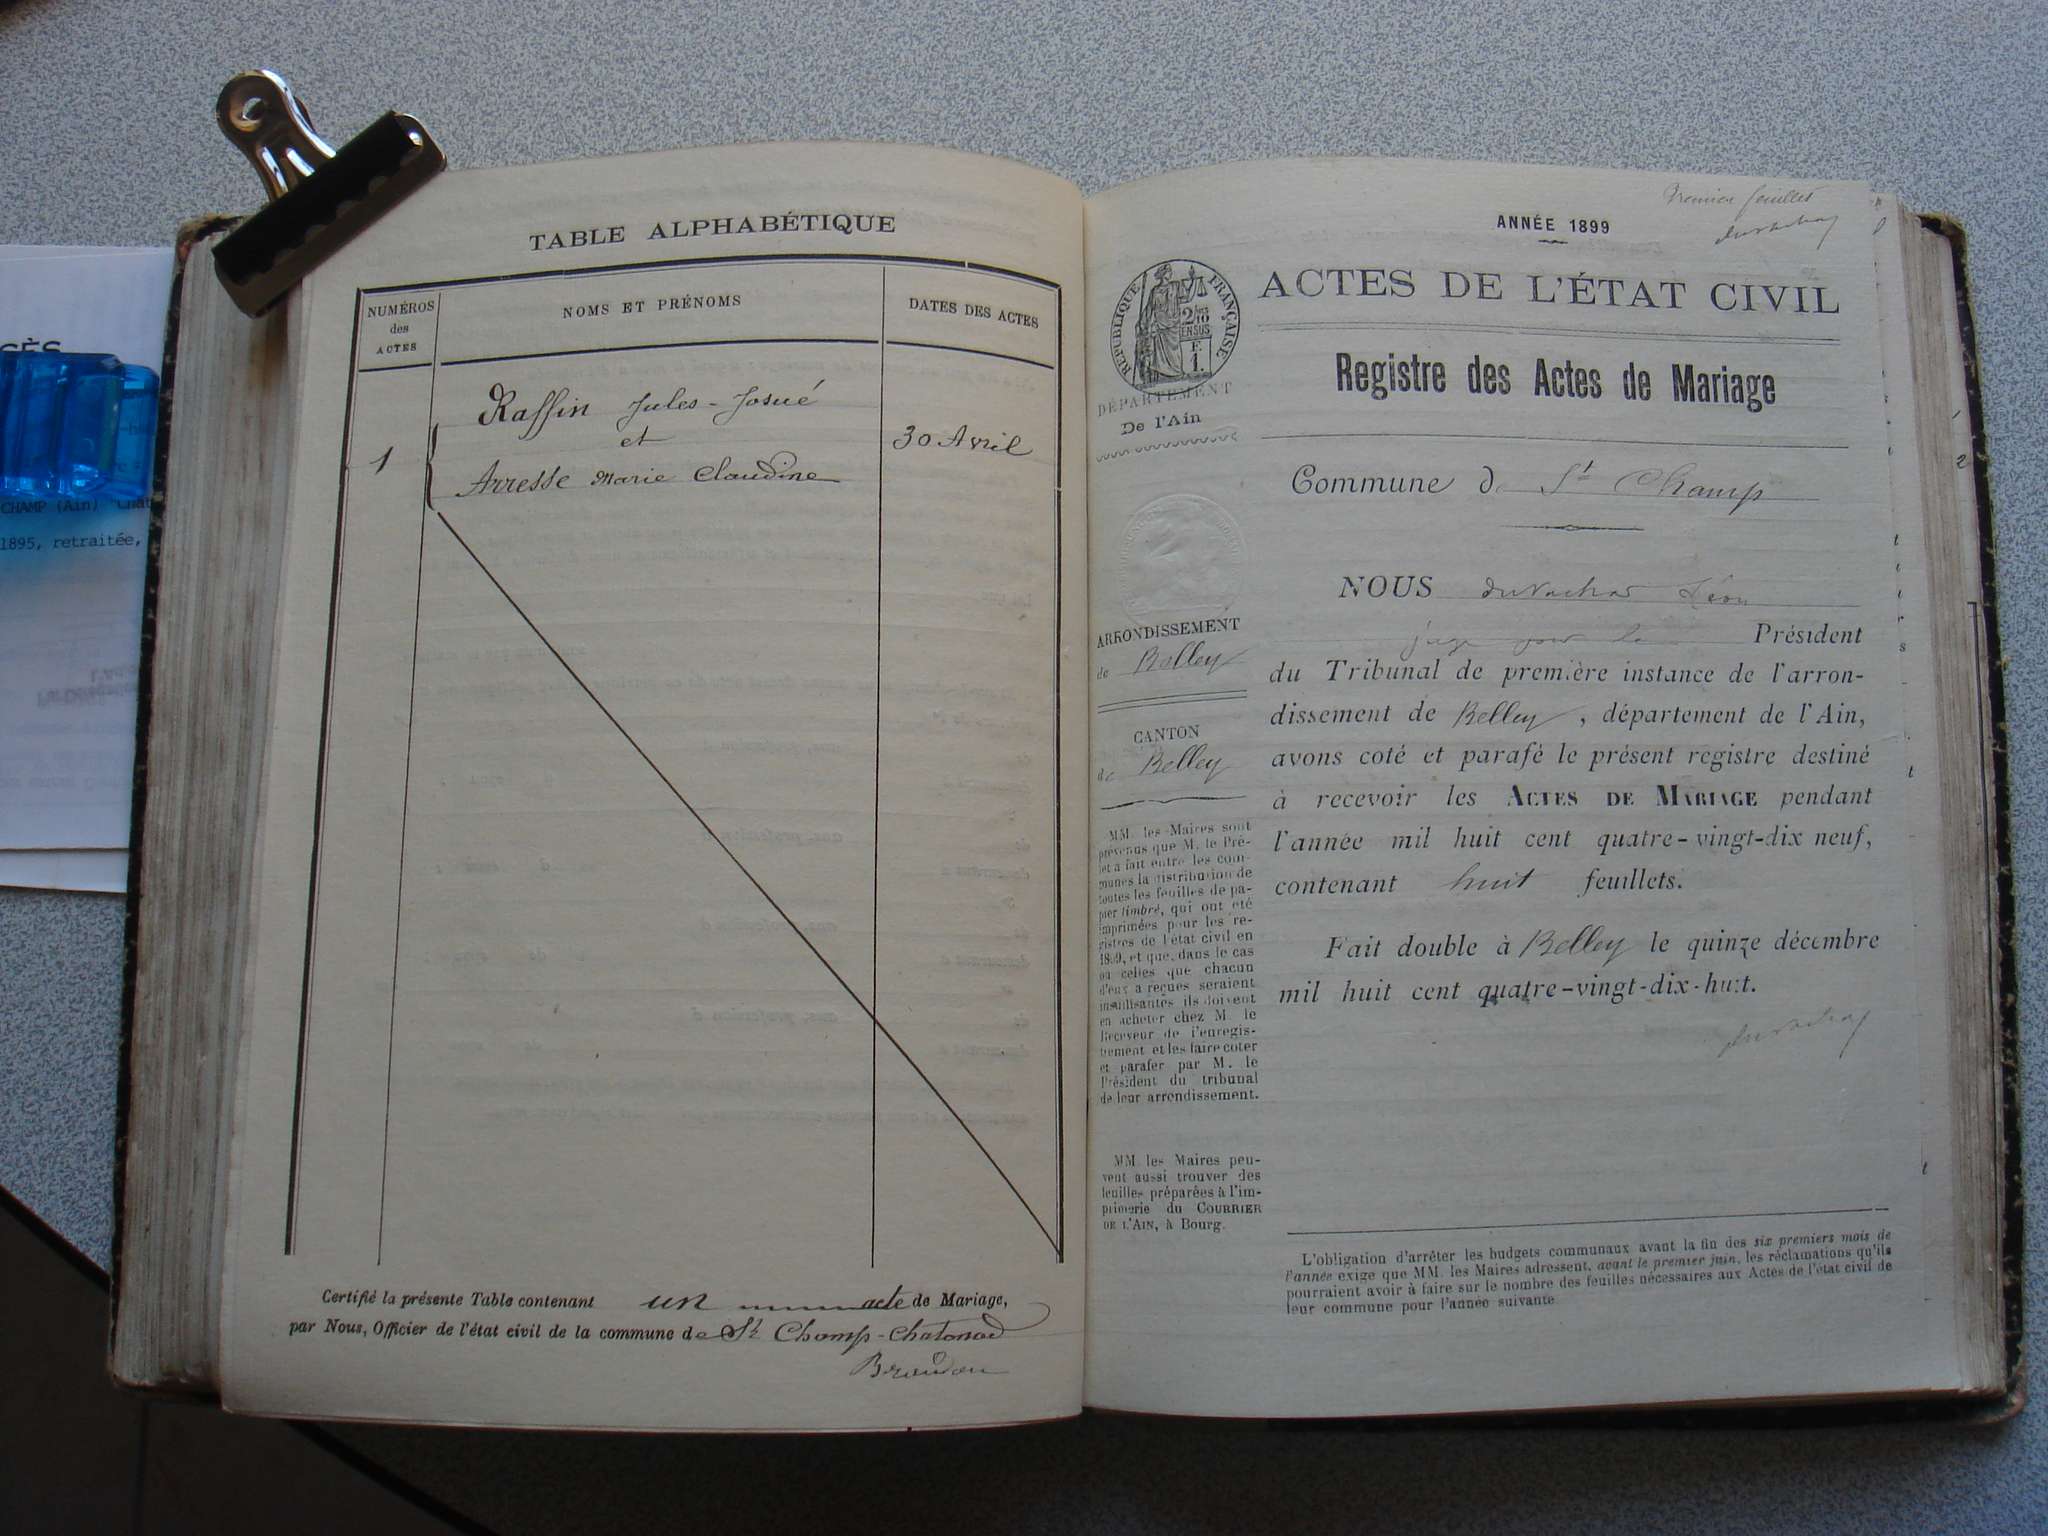 TABLE ALPHABÉTIQUE
NUMÉROS
des
ACTES
NOMS ET PRÉNOMS
DATES DES ACTES
1
Raffin Jules-Josué
et
Arresse Marie Claudine
30 Avril
Certifié la présente Table contenant un acte de Mariage,
par Nous, Officier de l'état civil de la commune de St Champ-Chatonod
Premier feuillet
ANNÉE 1899
ACTES DE L'ÉTAT CIVIL
RÉPUBLIQUE FRANÇAISE
DÉPARTEMENT
De l'Ain
Registre des Actes de Mariage
Commune de St Champ
ARRONDISSEMENT
de Belley
CANTON
de Belley
MM. les Maires sont
prévenus que M. le Pré-
fet a fait entre les com-
munes la distribution de
toutes les feuilles de pa-
pier timbré, qui ont été
imprimées pour les re-
gistres de l'état civil en
1899, et que, dans le cas
où celles que chacun
d'eux a reçues seraient
insuffisantes ils doivent
en acheter chez M. le
Receveur de l'enregis-
trement et les faire coter
et parafer par M. le
Président du tribunal
de leur arrondissement.
MM. les Maires peu-
vent aussi trouver des
feuilles préparées à l'im-
primerie du COURRIER
DE L'AIN, à Bourg.
NOUS Léon
juge pour le Président
du Tribunal de première instance de l'arron-
dissement de Belley, département de l'Ain,
avons coté et parafé le présent registre destiné
à recevoir les ACTES DE MARIAGE pendant
l'année mil huit cent quatre-vingt-dix neuf,
contenant huit feuillets.
Fait double à Belley le quinze décembre
mil huit cent quatre-vingt-dix-huit.
L'obligation d'arrêter les budgets communaux avant la fin des six premiers mois de
l'année exige que MM. les Maires adressent, avant le premier juin, les réclamations qu'ils
pourraient avoir à faire sur le nombre des feuilles nécessaires aux Actes de l'état civil de
leur commune pour l'année suivante
CHAMP (Ain)
1895, retraitée,